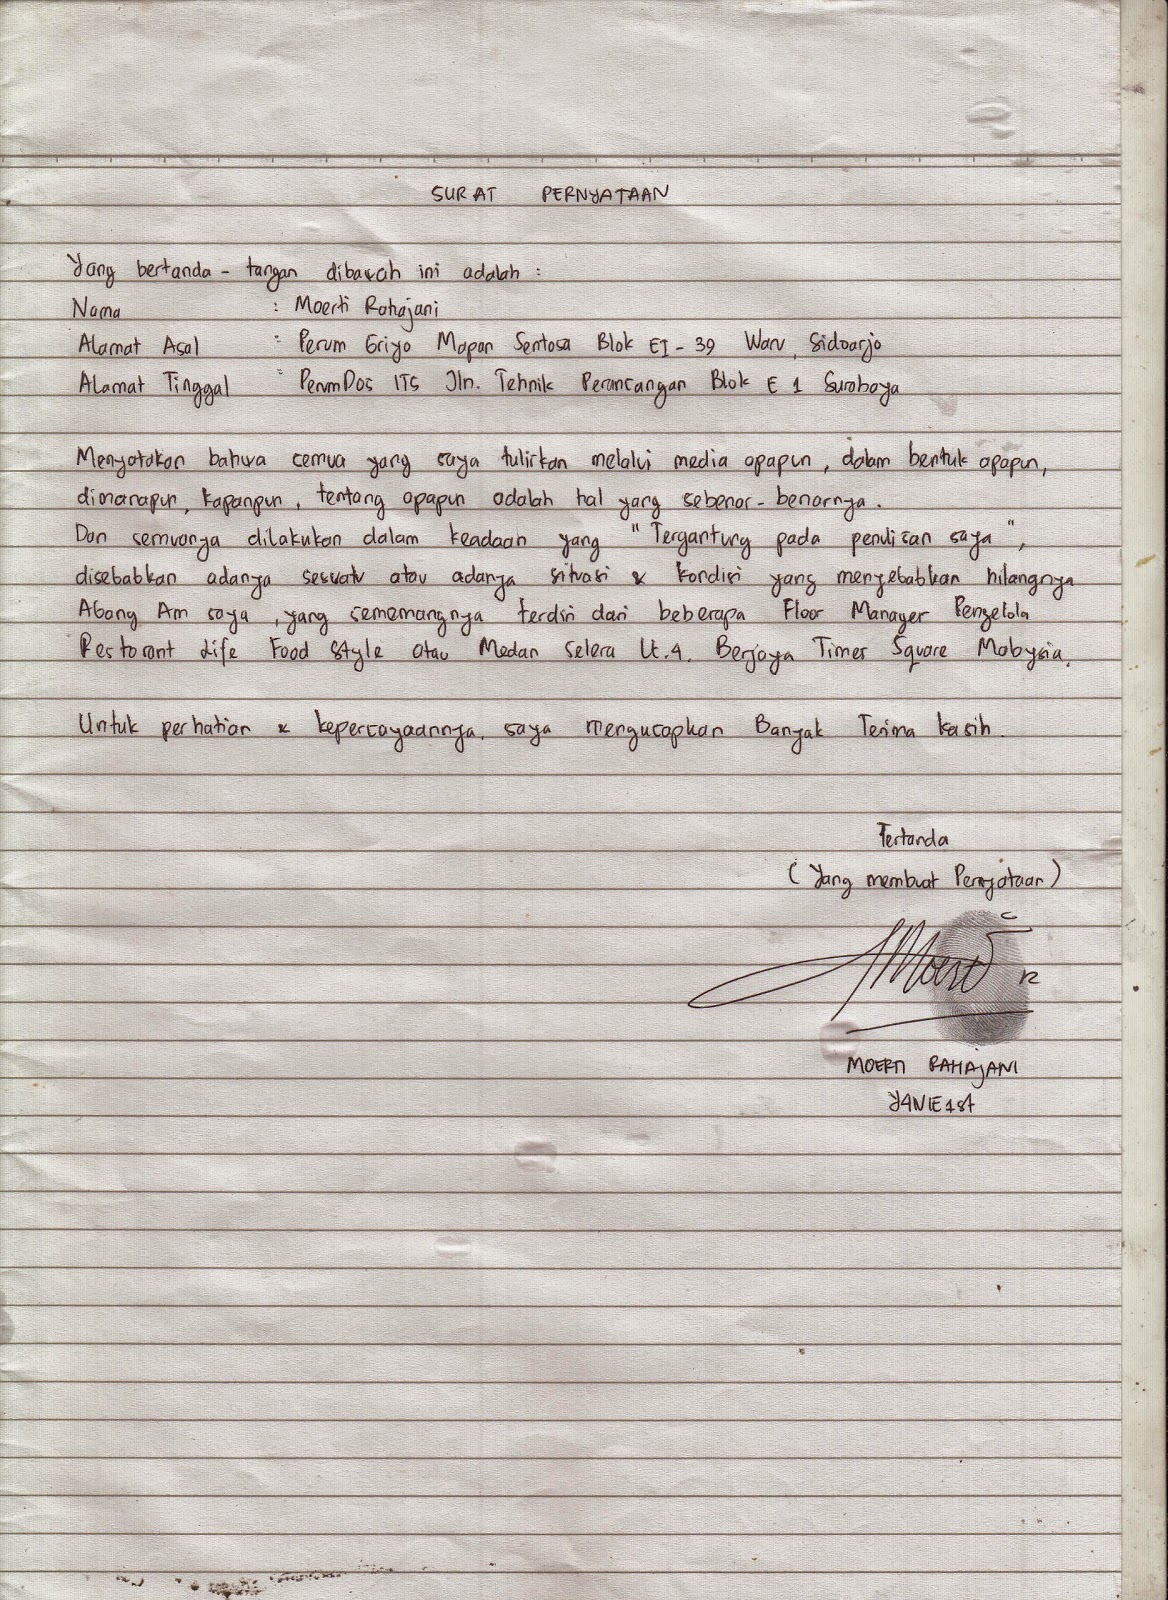 SURAT PERNYATAAN
Yang bertanda - tangan dibawah ini adalah :
Nama : Moerti Rahajani
Alamat Asal : Perum Griyo Mapan Sentosa Blok EI - 39 Waru, Sidoarjo
Alamat Tinggal : PerumDos ITS Jln. Tehnik Perancangan Blok E 1 Surabaya
Menyatakan bahwa semua yang saya tuliskan melalui media apapun, dalam bentuk apapun,
dimanapun, kapanpun, tentang apapun adalah hal yang sebenar - benarnya.
Dan semuanya dilakukan dalam keadaan yang "Tergantung pada penulisan saya",
disebabkan adanya sesuatu atau adanya situasi & kondisi yang menyebabkan hilangnya
Abang Am saya, yang sememangnya terdiri dari beberapa Floor Manager Pengelola
Restorant Life Food Style atau Medan Selera Lt.4. Berjaya Times Square Malaysia.
Untuk perhatian & kepercayaannya, saya mengucapkan Banyak Terima kasih.
Tertanda
(Yang membuat Pernyataan)
MOERTI RAHAJANI
Y4NIE1st